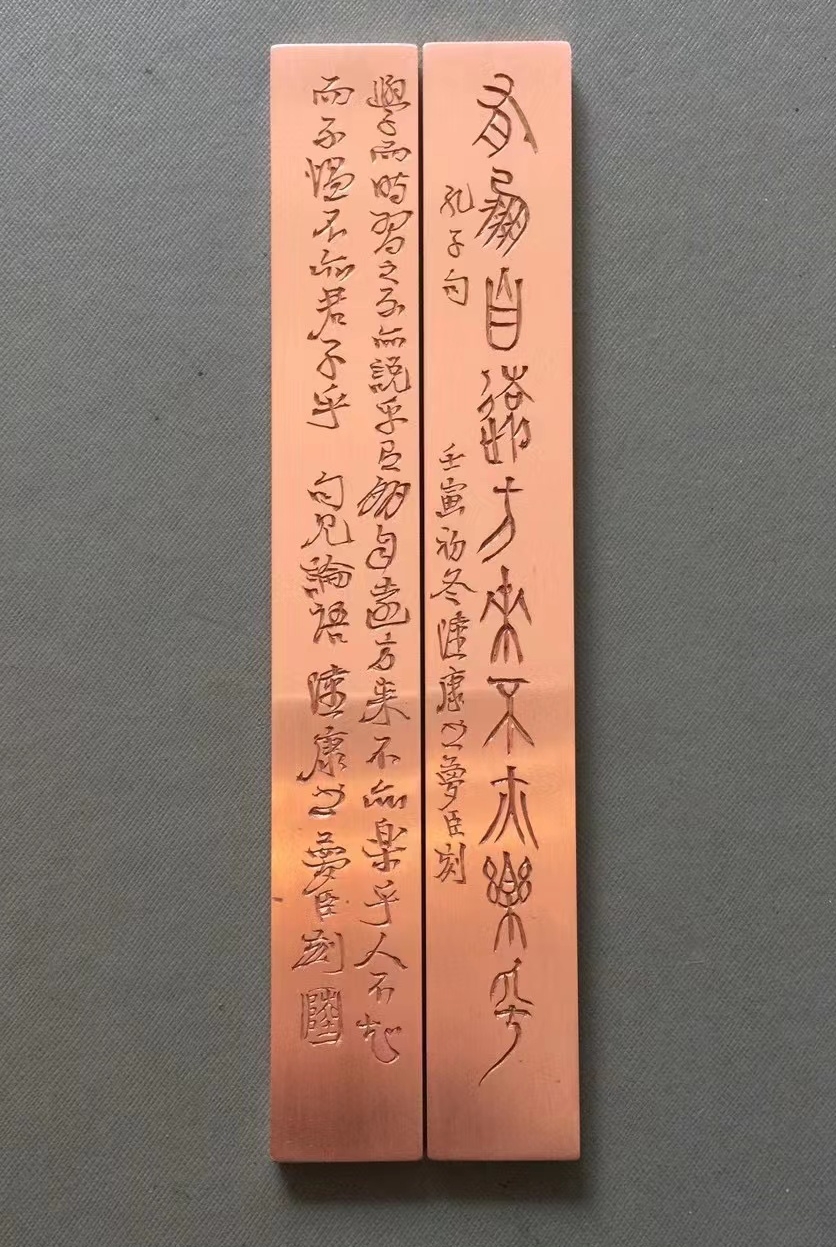 有朋自遠方來不亦樂乎
孔子句
壬寅初冬陸康书夢臣刻
學而時習之不亦説乎有朋自遠方来不亦楽乎人不知
而不愠不亦君子乎 句見論語 陸康书夢臣刻 陸